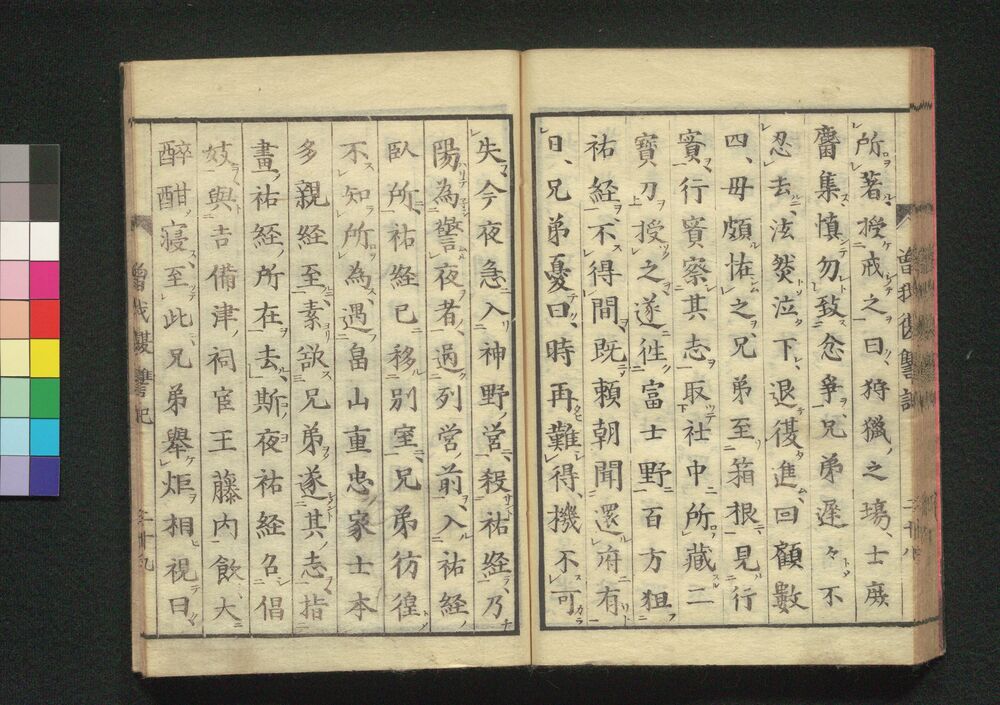 所著授戒之曰、狩獵之場、士庶
麕集、慎勿致忿爭、兄弟遲々不
忍去、泫然泣下、退復進、回顧數
四、母頗怪之、兄弟至箱根、見行
實、行實察其志、取社中所藏二
寶刀授之、遂往富士野、百方狙
祐經、不得間、既賴朝聞還府有
日、兄弟憂曰、時再難得、機不可
失、今夜急入神野營、殺祐經、乃
陽為警夜者、過列營前、入祐經
臥所、祐經已移別室、兄弟彷徨
不知所為、遇畠山重忠家士本
多親經至、素欲兄弟遂其志、指
畫祐經所在去、斯夜祐經召倡
妓、與吉備津祠官王藤內飲、大
醉酣寢、至此兄弟舉炬相視曰
曾我復讐記
三十九